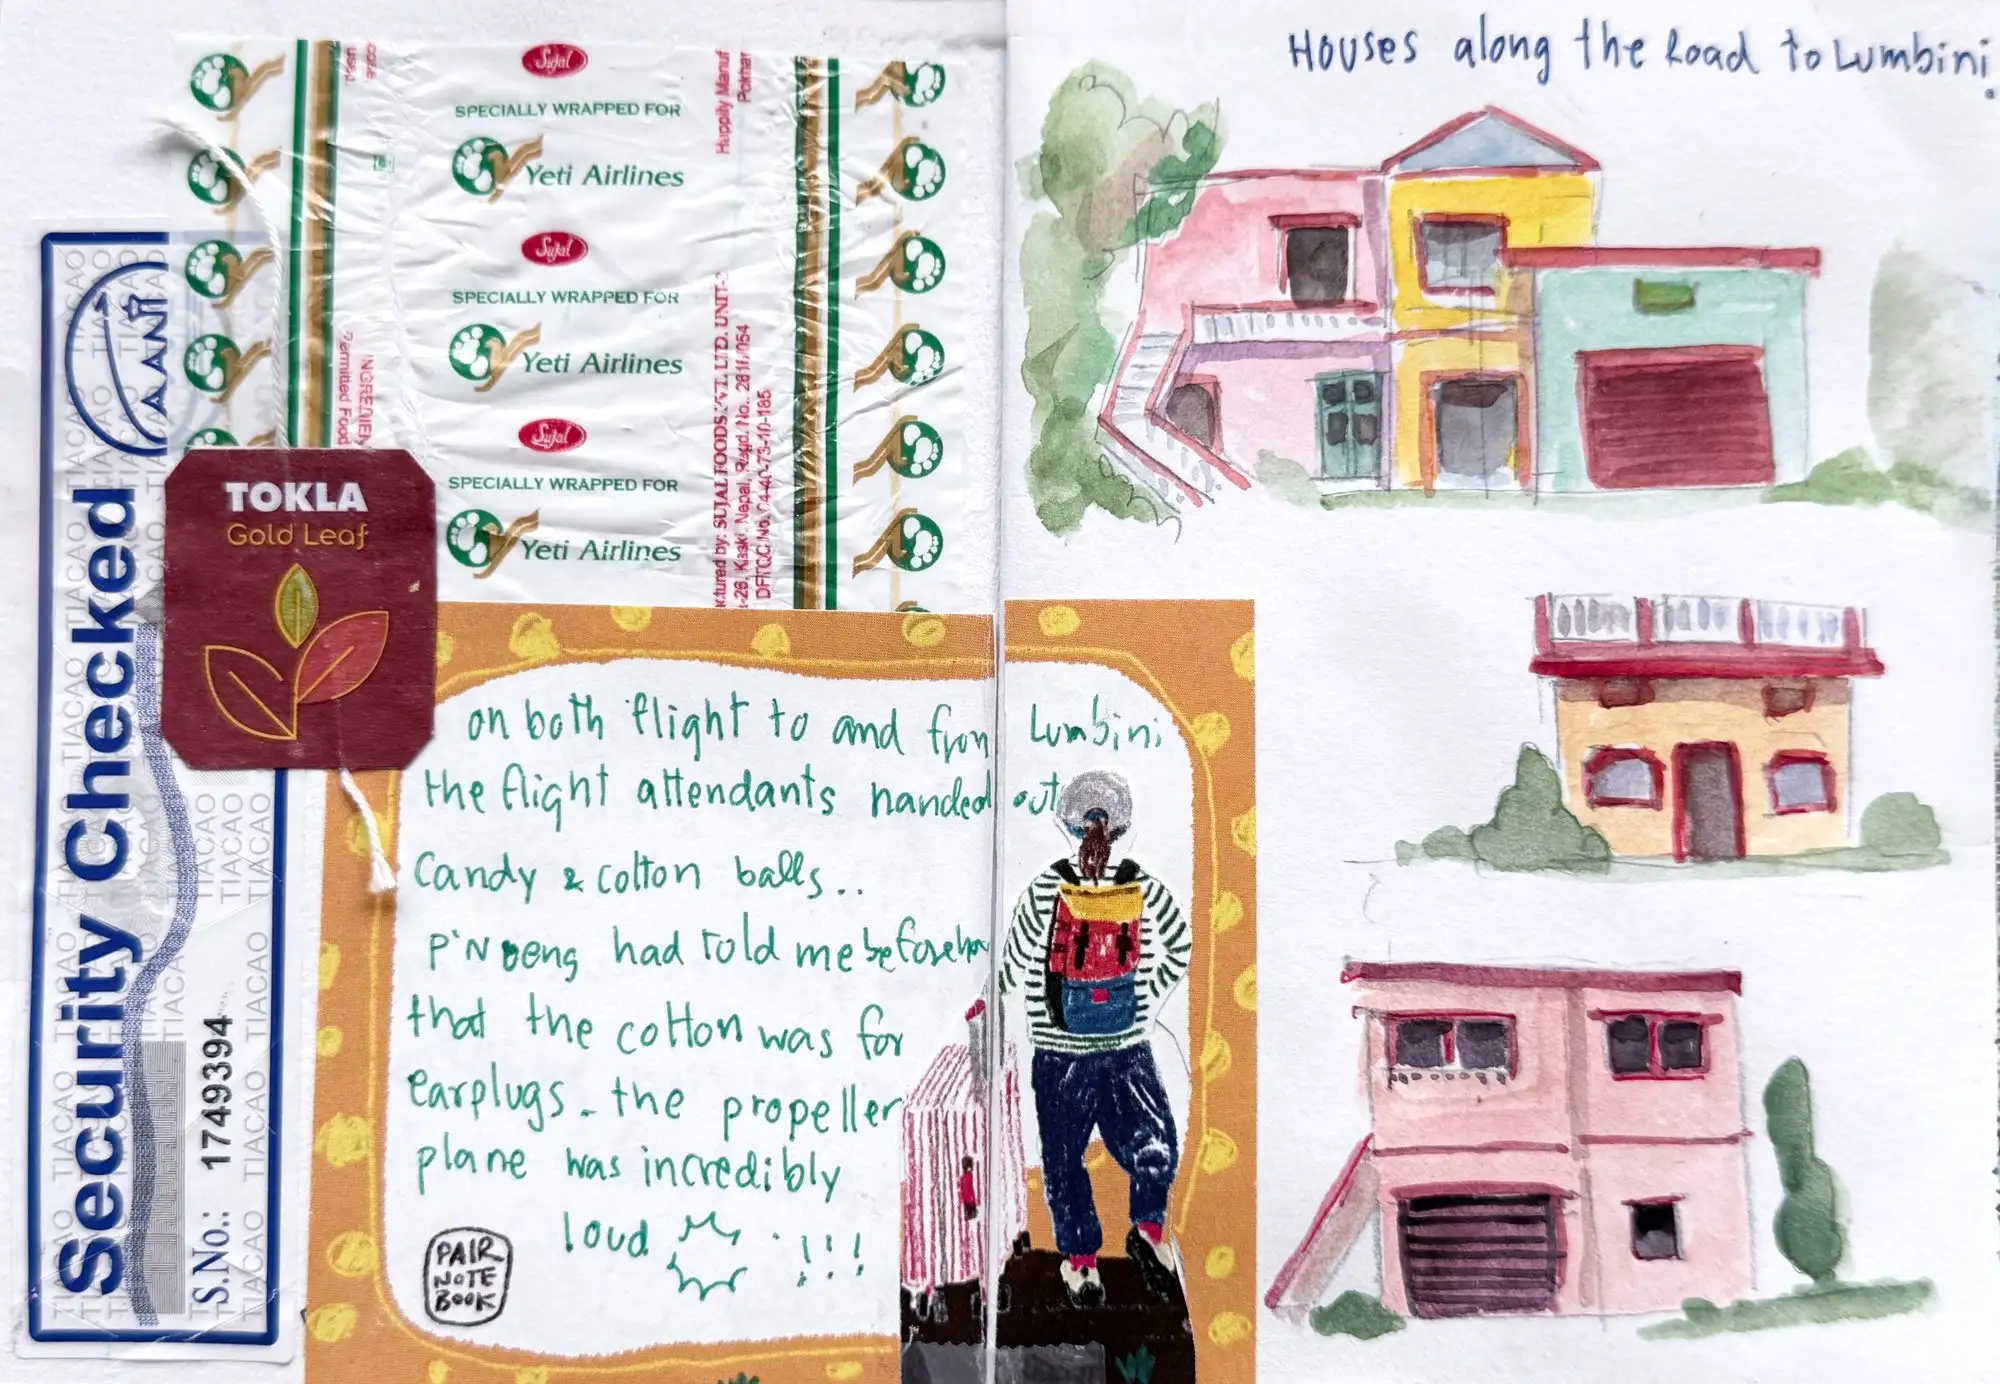 Houses along the Road to Lumbini.
Sujal
SPECIALLY WRAPPED FOR
Yeti Airlines
Sujal
SPECIALLY WRAPPED FOR
Yeti Airlines
Sujal
SPECIALLY WRAPPED FOR
Yeti Airlines
Happily Manuf
Pokhar
ctured by: SUJAL FOODS PVT. LTD. UNIT-
-26, Kaski, Nepal, Regd. No.
DFTQC No. 04-40-73-10-185
INGREDIEN
Permitted Food
TIACAO
Security Checked
S.No.: 1749394
TOKLA
Gold Leaf
on both flight to and from Lumbini
the flight attendants handed out
candy & cotton balls..
P'Noeng had told me beforehan
that the cotton was for
earplugs. the propeller
plane was incredibly
loud !!!
PAIR
NOTE
BOOK